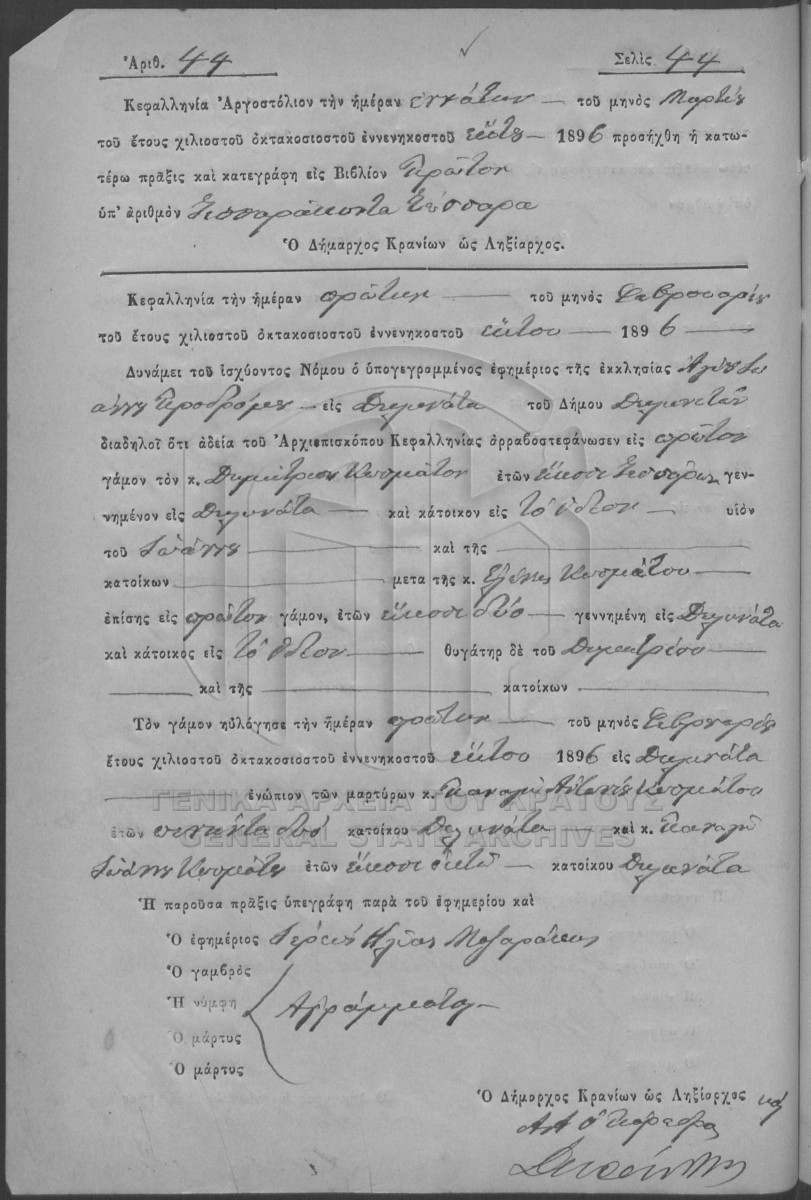 Ἀριθ. 44 Σελὶς 44
Κεφαλληνία Ἀργοστόλιον τὴν ἡμέραν ἐννάτην — τοῦ μηνὸς Μαρτίου
τοῦ ἔτους χιλιοστοῦ ὀκτακοσιοστοῦ ἐννενηκοστοῦ ἕκτου — 1896 προσήχθη ἡ κατω-
τέρω πρᾶξις καὶ κατεγράφη εἰς Βιβλίον Πρῶτον
ὑπ' ἀριθμὸν Τεσσαράκοντα τέσσαρα
Ὁ Δήμαρχος Κρανίων ὡς Ληξίαρχος.
Κεφαλληνία τὴν ἡμέραν πρώτην — τοῦ μηνὸς Φεβρουαρίου
τοῦ ἔτους χιλιοστοῦ ὀκτακοσιοστοῦ ἐννενηκοστοῦ ἕκτου — 1896 —
Δυνάμει τοῦ ἰσχύοντος Νόμου ὁ ὑπογεγραμμένος ἐφημέριος τῆς ἐκκλησίας Ἁγίου Ἰω
άννου Προδρόμου — εἰς Διλινάτα τοῦ Δήμου
διαδηλοῖ ὅτι ἀδεία τοῦ Ἀρχιεπισκόπου Κεφαλληνίας ἀρραβοστεφάνωσεν εἰς πρῶτον
γάμον τὸν κ. Δημήτριον Κοσμάτον ἐτῶν εἴκοσι τεσσάρων γεν-
νημένον εἰς Διλινάτα — καὶ κάτοικον εἰς τὸ ἴδιον — υἱὸν
τοῦ Ἰωάννου — καὶ τῆς —
κατοίκων — μετα τῆς κ. Ἑλένης Κοσμάτου —
ἐπίσης εἰς πρῶτον γάμον, ἐτῶν εἴκοσι δύο — γεννημένη εἰς Διλινάτα
καὶ κάτοικος εἰς τὸ ἴδιον — θυγάτηρ δὲ τοῦ Δημητρίου —
— καὶ τῆς — κατοίκων —
Τὸν γάμον ηὐλόγησε τὴν ἡμέραν πρώτην — τοῦ μηνὸς Φεβρουαρίου
ἔτους χιλιοστοῦ ὀκτακοσιοστοῦ ἐννενηκοστοῦ ἕκτου 1896 εἰς Διλινάτα
— ἐνώπιον τῶν μαρτύρων κ. Παναγῆ Ἀντωνίου Κοσμάτου
ἐτῶν πενῆντα δύο κατοίκου Διλινάτα — καὶ κ. Παναγῆ
Ἰωάννου Κοσμάτου ἐτῶν εἴκοσι ὀκτὼ — κατοίκου Διλινάτα
Ἡ παροῦσα πρᾶξις ὑπεγράφη παρὰ τοῦ ἐφημερίου καὶ
Ὁ ἐφημέριος Ἱερεὺς Ἠλίας
Ὁ γαμβρὸς
Ἡ νύμφη Ἀγράμματοι —
Ὁ μάρτυς
Ὁ μάρτυς
Ὁ Δήμαρχος Κρανίων ὡς Ληξίαρχος
ΓΕΝΙΚΑ ΑΡΧΕΙΑ ΤΟΥ ΚΡΑΤΟΥΣ
GENERAL STATE ARCHIVES